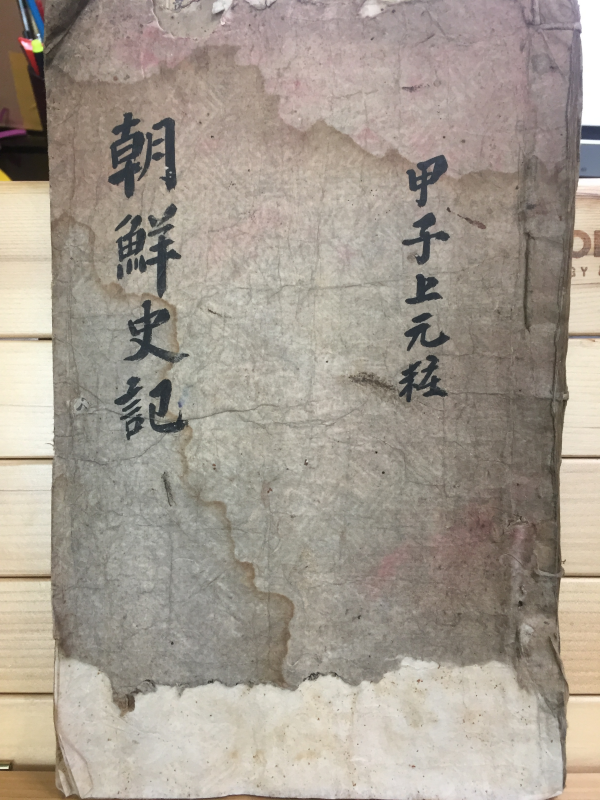 甲子上元粧
朝鮮史記